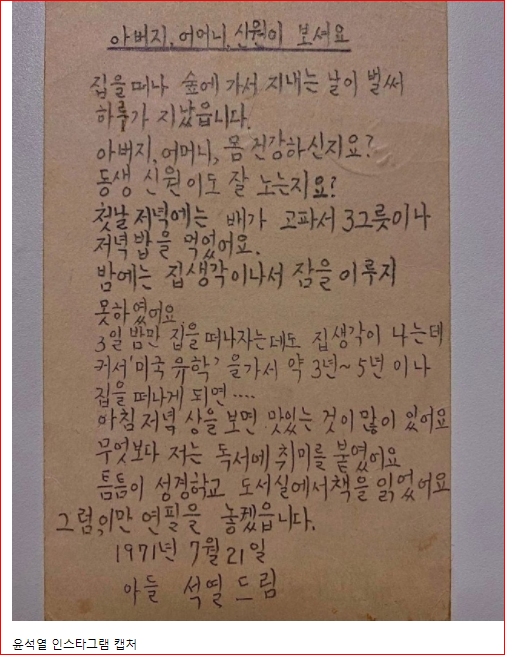 아버지, 어머니, 신원이 보셔요
집을 떠나 숲에 가서 지내는 날이 벌써
하루가 지났읍니다.
아버지, 어머니, 몸 건강하신지요?
동생 신원이도 잘 노는지요?
첫날 저녁에는 배가 고파서 3그릇이나
저녁 밥을 먹었어요.
밤에는 집생각이나서 잠을 이루지
못하였어요
3일 밤만 집을 떠나자는데도 집생각이 나는데
커서 '미국 유학'을가서 약 3년~5년이나
집을 떠나게 되면····
아침 저녁 상을 보면 맛있는 것이 많이 있어요
무엇보다 저는 독서에 취미를 붙였어요
틈틈이 성경학교 도서실에서책을 읽었어요
그럼이만 연필을 놓겠읍니다.
1971년 7월 21일
아들 석열 드림
윤석열 인스타그램 캡처